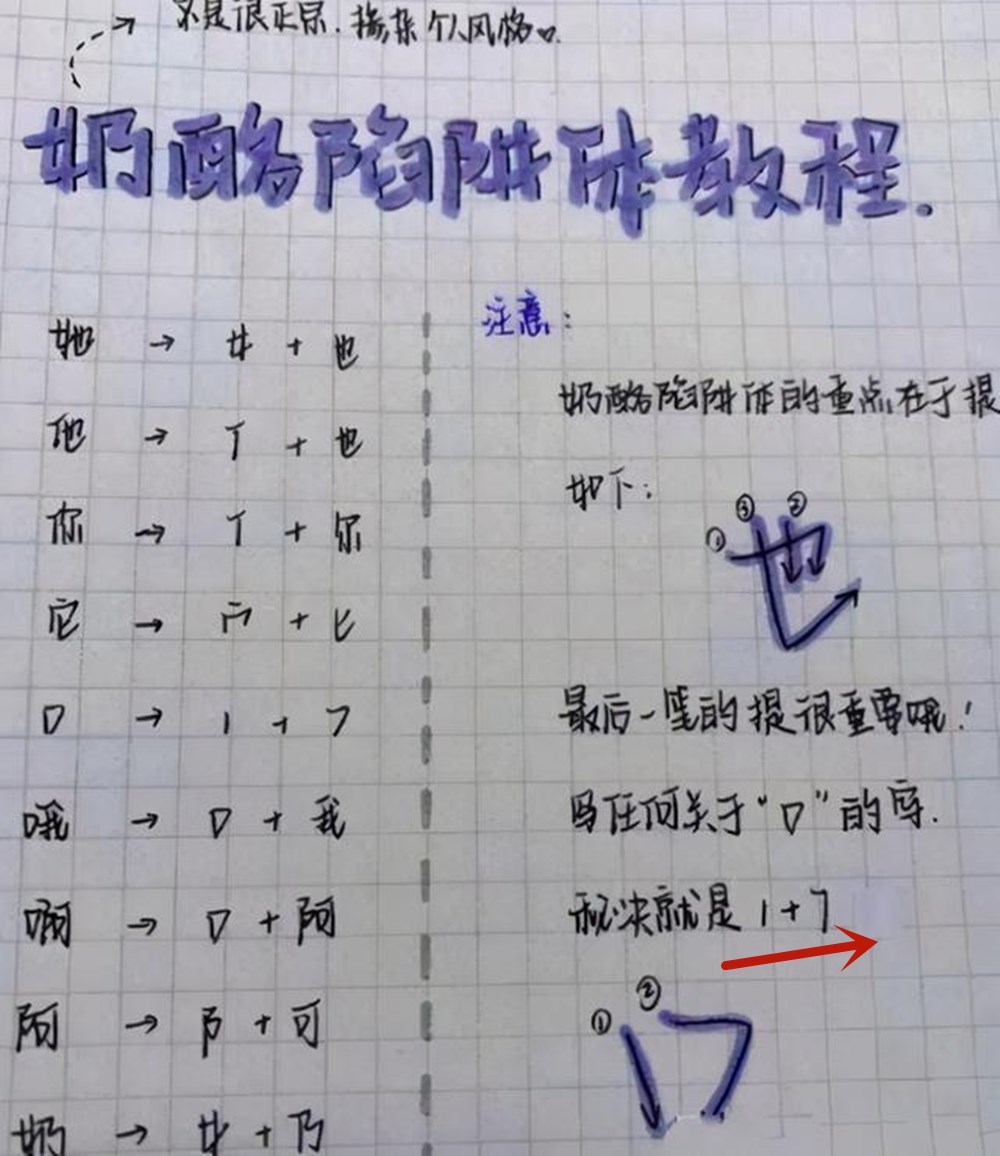 不是很正常.掺杂个人风格
奶酪陷阱体教程.
她 → 女 + 也
他 → 亻 + 也
你 → 亻 + 尔
它 → 宀 + 匕
口 → 1 + 7
哦 → 口 + 我
啊 → 口 + 阿
阿 → 阝 + 可
奶 → 女 + 乃
注意:
奶酪陷阱体的重点在于提
如下:
① ③ ②
也
最后一笔的提很重要哦!
写任何关于“口”的字.
秘诀就是 1+7
① ②
口